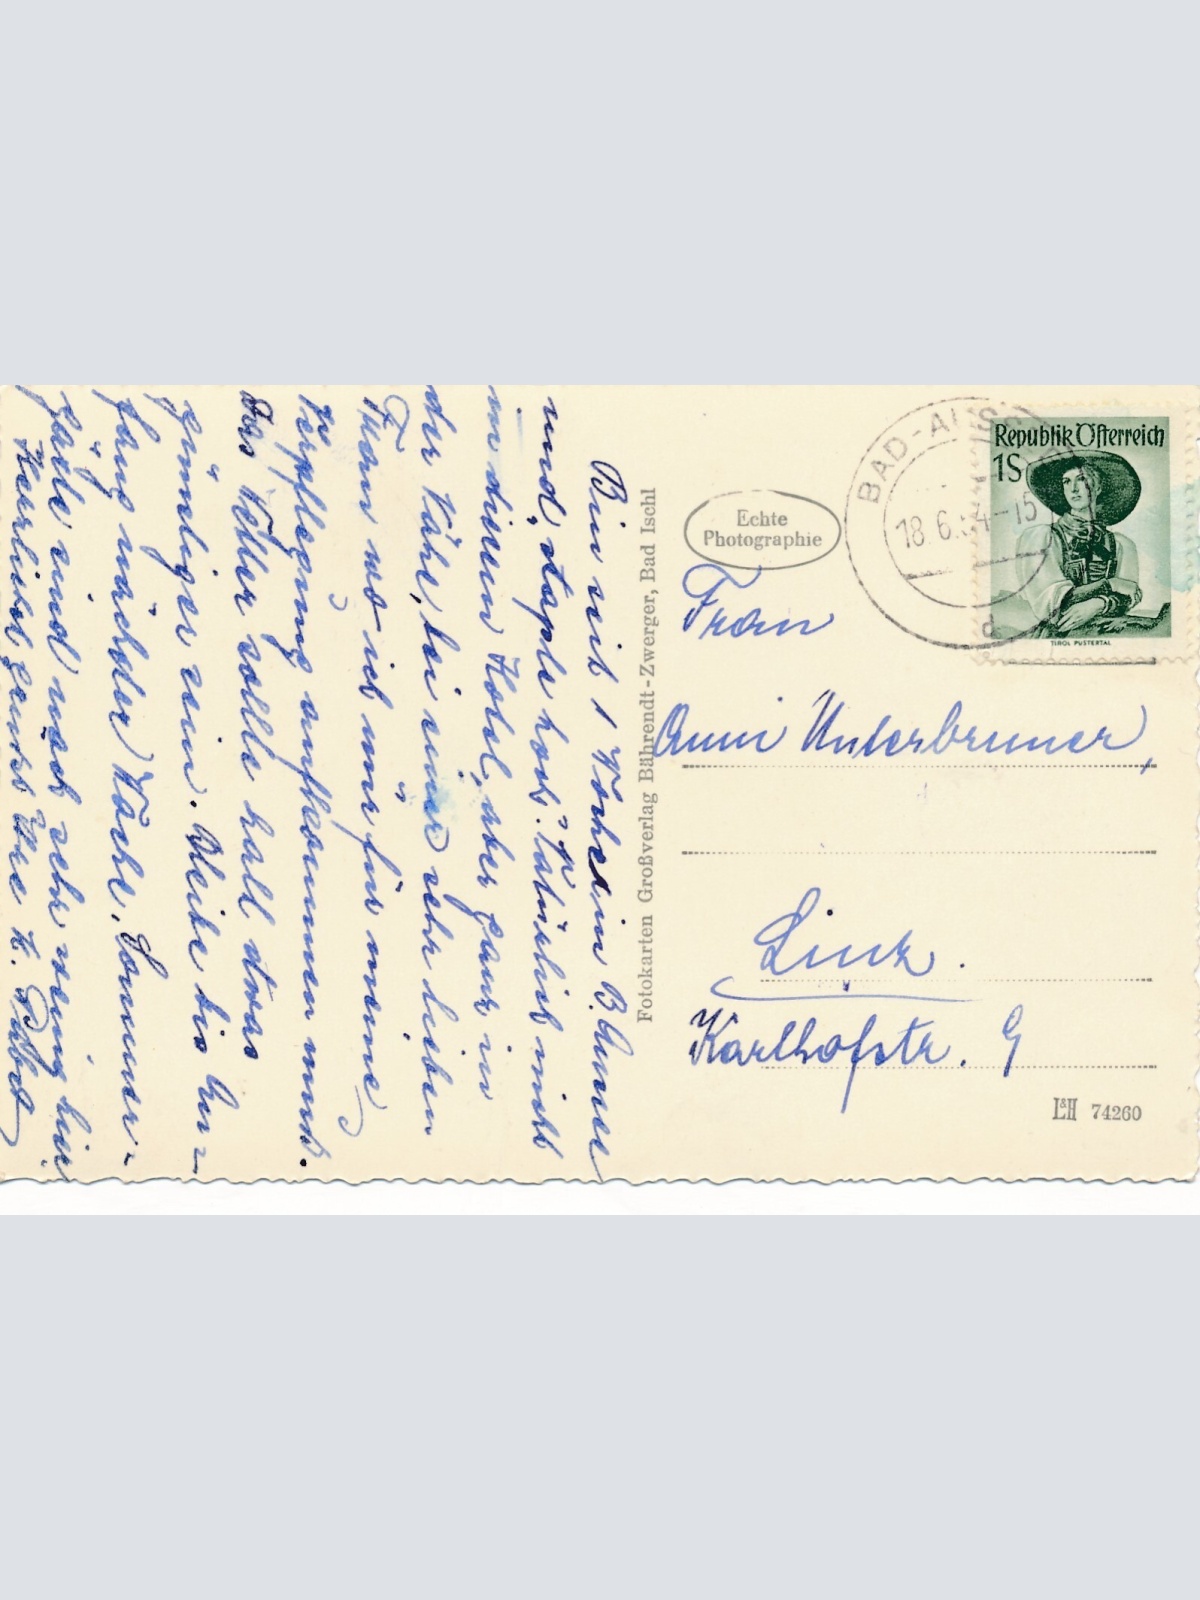 Bin seit 1 Woche in B. Aussee
und staple hoch. Natürlich nicht
in diesem Hotel, aber ganz in
der Nähe, bei einer sehr lieben
Frau wo ich nur für meine
Verpflegung aufkommen muß.
Das Wetter sollte halt etwas
günstiger sein. Bleibe bis An-
fang nächster Woche. Sommer-
gäste sind noch sehr wenig hier.
Herzlichst grüßt Ihre
Fotokarten Großverlag Bährendt-Zwerger, Bad Ischl
Echte
Photographie
BAD-AUSSEE
18.6.54-15
d
Republik Österreich
1S
TIROL PUSTERTAL
Frau
Anni Unterbrunner,
Linz.
Karlhofstr. 9
L&H 74260